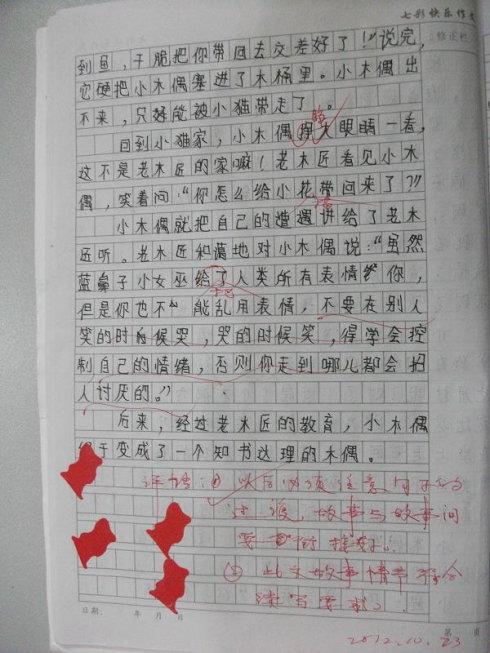 七彩快乐作文
修正栏
到鱼，干脆把你带回去交差好了！”说完，
它便把小木偶塞进了木桶里。小木偶出
不来，只好能被小猫带走了。
回到小猫家，小木偶睁大眼睛一看，
睁
这不是老木匠的家嘛！老木匠看见小木
偶，笑着问：“你怎么给小花带回来了？”
小木偶就把自己的遭遇讲给了老木
匠听。老木匠和蔼地对小木偶说：“虽然
蓝鼻子小女巫给了人类所有表情给你，
但是你也不能乱用表情，不要在别人
笑的时候哭，哭的时候笑，得学会控
制自己的情绪，否则你走到哪儿都会招
人讨厌的。”
后来，经过老木匠的教育，小木偶
终于变成了一个知书达理的木偶。
评语：① 以后必须注意句子的
过渡，故事与故事间
要
② 此文故事情节符合
续写要求。
日期： 年 月 日
第 页
2012.10.23